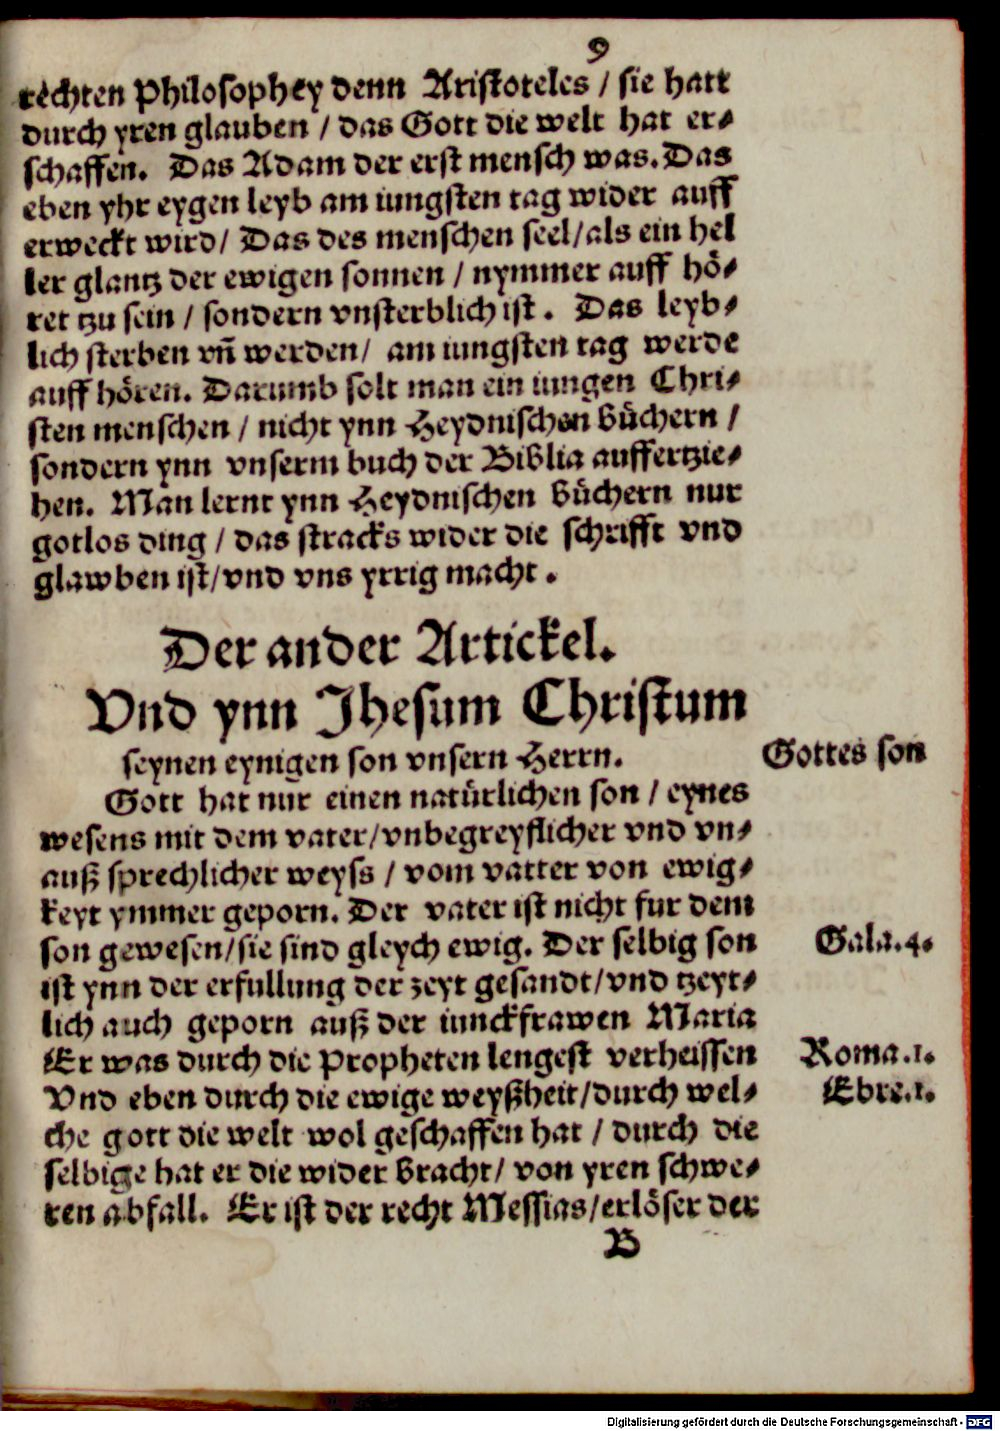 9
rechten Philosophey denn Aristoteles / sie hatt
durch yren glauben / das Gott die welt hat er⸗
schaffen. Das Adam der erst mensch was. Das
eben yhr eygen leyb am iungsten tag wider auff
erweckt wird / Das des menschen seel / als ein hel
ler glantz der ewigen sonnen / nymmer auff hö⸗
ret tzu sein / sondern vnsterblich ist. Das leyb⸗
lich sterben vñ werden / am iungsten tag werde
auff hören. Darumb solt man ein iungen Chri⸗
sten menschen / nicht ynn Heydnischen Bůchern /
sondern ynn vnserm buch der Biblia auffertzie⸗
hen. Man lernt ynn Heydnischen Bůchern nur
gotlos ding / das stracks wider die schrifft vnd
glawben ist / vnd vns yrrig macht.
Der ander Artickel.
Vnd ynn Jhesum Christum
seynen eynigen son vnsern Herrn. Gottes son
Gott hat nur einen natürlichen son / eynes
wesens mit dem vater / vnbegreyflicher vnd vn⸗
auß sprechlicher weyss / vom vatter von ewig⸗
keyt ymmer geporn. Der vater ist nicht fur dem
son gewesen / sie sind gleych ewig. Der selbig son Gala. 4.
ist ynn der erfullung der zeyt gesandt / vnd tzeyt⸗
lich auch geporn auß der iunckfrawen Maria
Er was durch die Propheten lengest verheissen Roma. 1.
Vnd eben durch die ewige weyßheit / durch wel⸗ Ebre. 1.
che gott die welt wol geschaffen hat / durch die
selbige hat er die wider bracht / von yren schwe⸗
ren abfall. Er ist der recht Messias / erlöser der
B
Digitalisierung gefördert durch die Deutsche Forschungsgemeinschaft - DFG